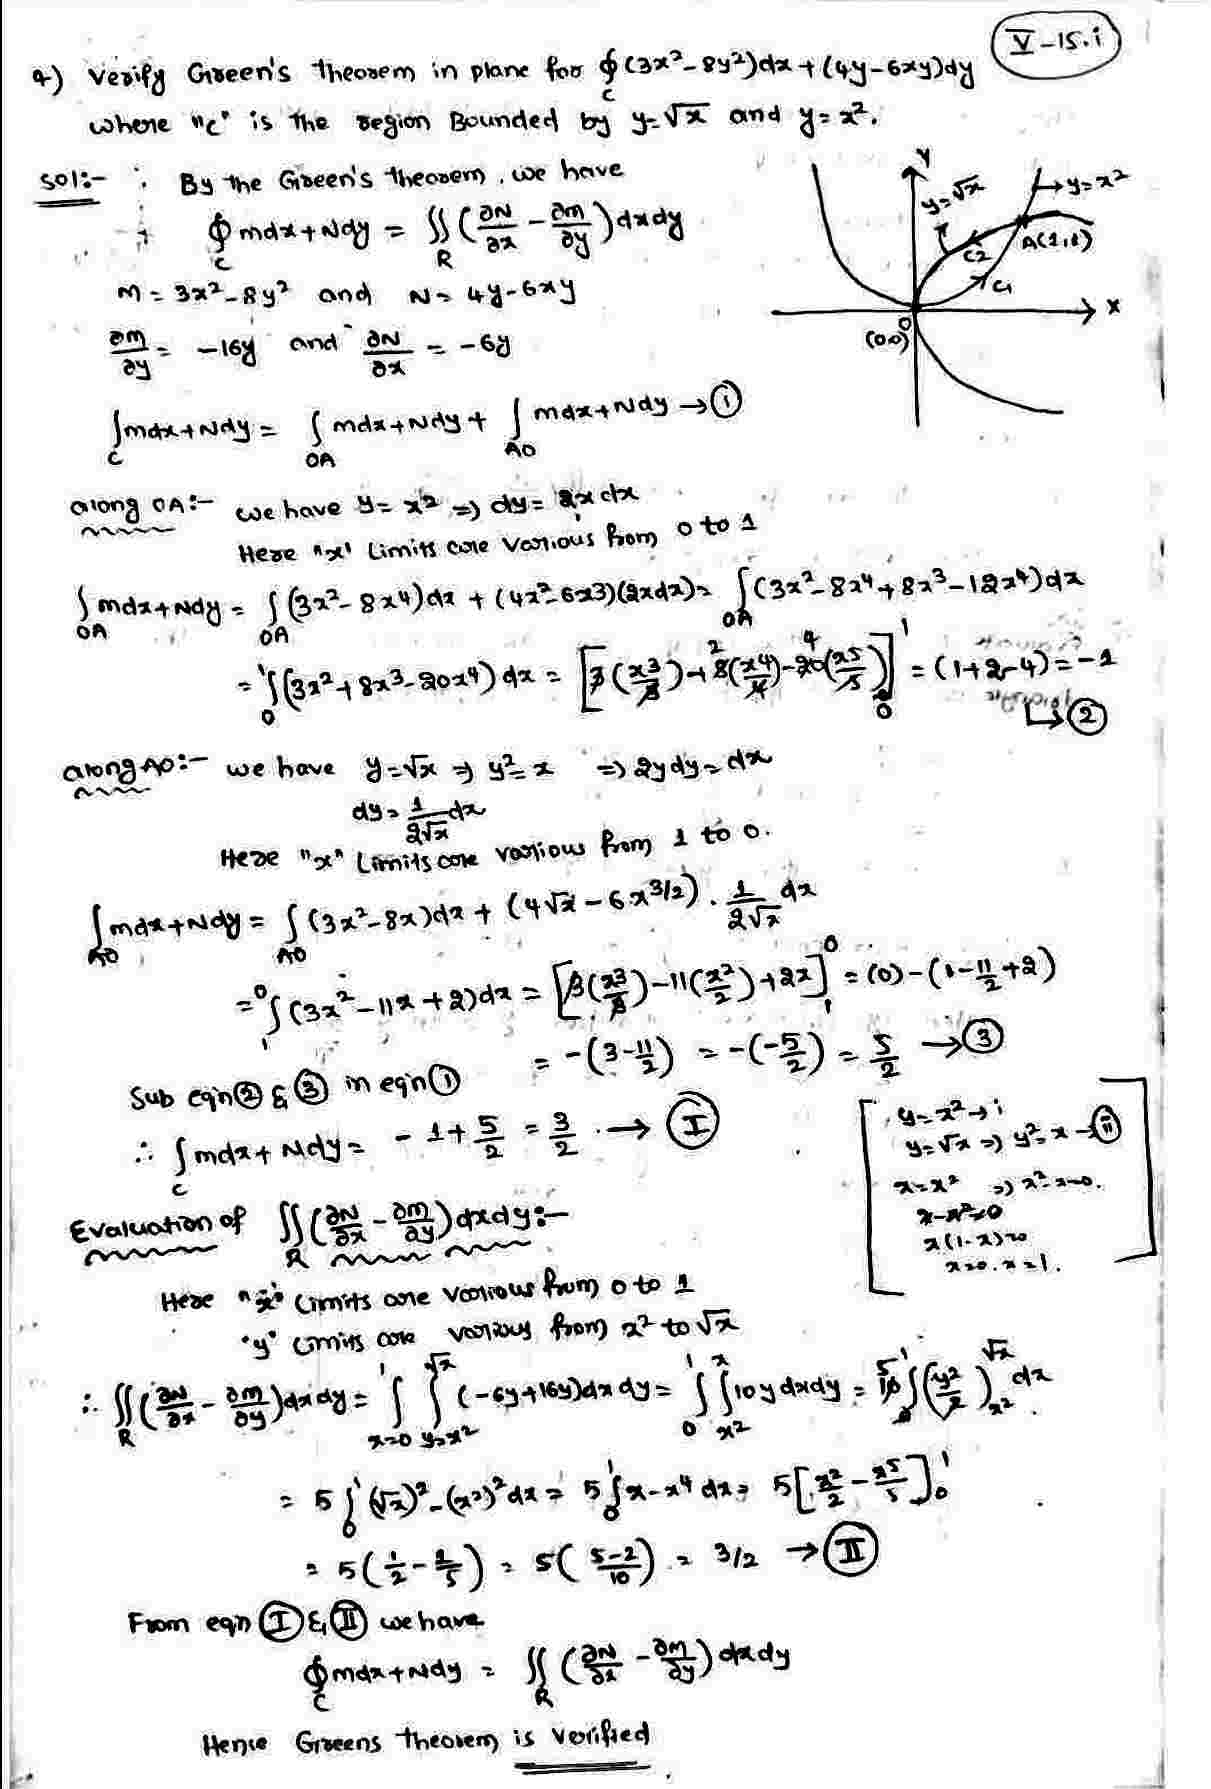 V-15.i
4) Verify Green's theorem in plane for ∮_C (3x²-8y²)dx + (4y-6xy)dy
where "c" is the region Bounded by y=√x and y=x².
Sol:- By the Green's theorem, we have
∮_C mdx+Ndy = ∬_R (∂N/∂x - ∂m/∂y) dxdy
m = 3x²-8y² and N = 4y-6xy
∂m/∂y = -16y and ∂N/∂x = -6y
∫_C mdx+Ndy = ∫_OA mdx+Ndy + ∫_AO mdx+Ndy → ①
Y
y=√x
→y=x²
A(1,1)
C2
C1
X
O
(0,0)
along OA:- we have y=x² ⇒ dy=2xdx
Here "x" Limits are various from 0 to 1
∫_OA mdx+Ndy = ∫_OA (3x²-8x⁴)dx + (4x²-6x3)(2xdx) = ∫_OA (3x²-8x⁴+8x³-12x⁴)dx
= ∫_0^1 (3x²+8x³-20x⁴)dx = [3(x³/3)+8(x4/4)-20(x5/5)]_0^1 = (1+2-4) = -1
↳②
along AO:- we have y=√x ⇒ y²=x ⇒ 2ydy=dx
dy = 1/2√x dx
Here "x" Limits are various from 1 to 0.
∫_AO mdx+Ndy = ∫_AO (3x²-8x)dx + (4√x-6x^3/2). 1/2√x dx
= ∫_1^0 (3x²-11x+2)dx = [3(x³/3)-11(x²/2)+2x]_1^0 = (0)-(1-11/2+2)
= -(3-11/2) = -(-5/2) = 5/2 → ③
Sub eqn② & ③ in eqn①
∴ ∫_C mdx+Ndy = -1+5/2 = 3/2 → Ⓘ
y=x²→i
y=√x ⇒ y²=x →ⓘⓘ
x=x² ⇒ x²-x=0.
x-x²=0
x(1-x)=0
x=0, x=1.
Evaluation of ∬_R (∂N/∂x - ∂m/∂y) dxdy:-
Here "x" limits are various from 0 to 1
"y" limits are various from x² to √x
∴ ∬_R (∂N/∂x - ∂m/∂y)dxdy = ∫_x=0^1 ∫_y=x²^√x (-6y+16y)dxdy = ∫_0^1 ∫_x²^x 10ydxdy = 5 10 ∫_0^1 (y²/2)_x²^√x dx
= 5∫_0^1 (√x)²-(x²)²dx = 5∫_0^1 x-x⁴ dx = 5[x²/2 - x5/5]_0^1
= 5(1/2-1/5) = 5(5-2/10) = 3/2 → Ⓘⓘ
From eqn Ⓘ & Ⓘⓘ we have
∮_C mdx+Ndy = ∬_R (∂N/∂x - ∂m/∂y) dxdy
Hence Greens theorem is verified